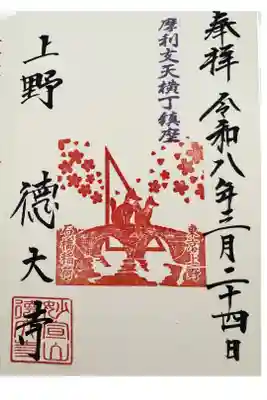 奉拝 令和八年三月二十四日
摩利支天横丁鎮座
上野 德大寺
妙宣山